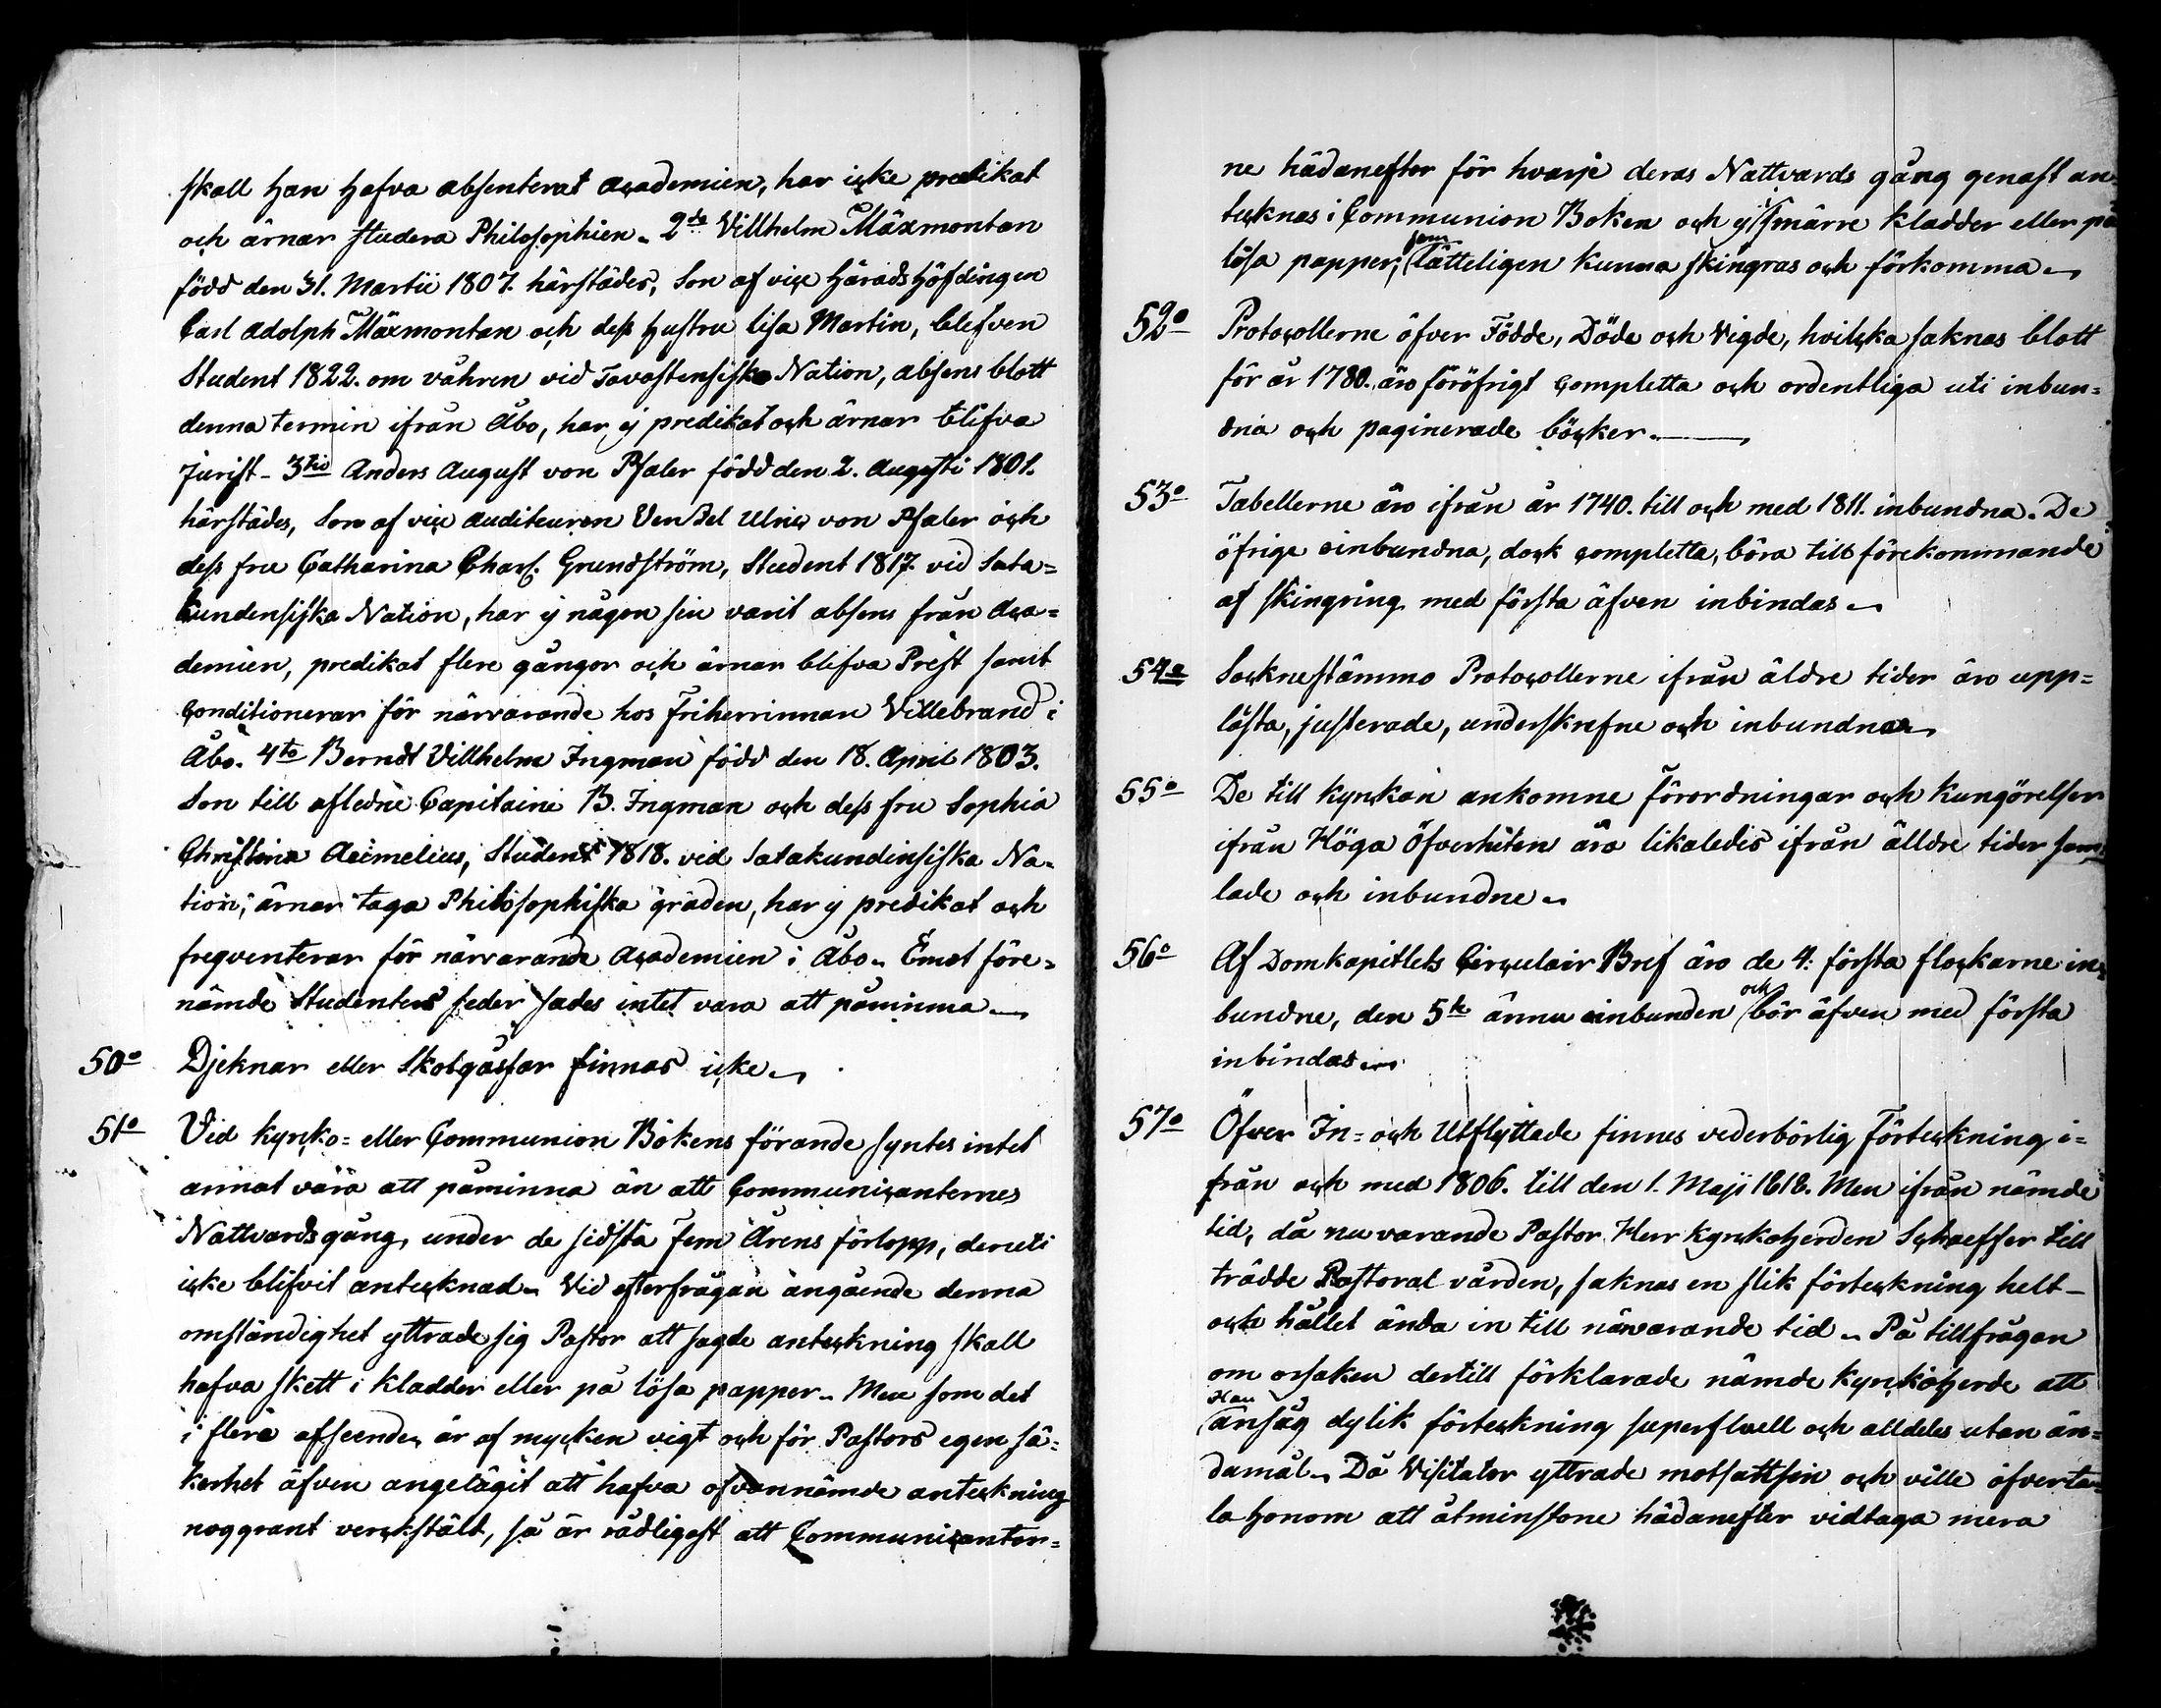 skall han hafva absenterat Academien, har icke predikat
och ärnar studera Philosophien. 2do Villhelm Mäxmontan
född den 31. Martii 1807. härstädes, Son af vice Häradshöfdingen
Carl Adolph Mäxmontan och dess hustru Lisa Martin, blefven
Student 1822. om våhren vid Tavastensiska Nation, absens blott
denna termin ifrån Åbo, har ej predikat och ärnar blifva
Jurist. 3tio Anders August von Pfaler född den 2. Augusti 1801.
härstädes, Son af vice Auditeuren Venzel Ulric von Pfaler och
dess fru Catharina Charl. Grundström, Student 1817. vid Sata=
kundensiska Nation, har ej någon sin varit absens från Aca=
demien, predikat flere gångor och ärnar blifva Prest samt
Conditionerar för närvarande hos Friherrinnan Villebrand i
Åbo. 4to Berndt Villhelm Ingman född den 18. April 1803.
Son till afledne Capitaine B. Ingman och dess fru Sophia
Christina Aeimelius, Student 1818. vid Satakundinsiska Na=
tion, ärnar taga Philosophiska graden, har ej predikat och
freqventerar för närvarande Academien i Åbo. Emot före=
nämde Studenters seder sades intet vara att påminna.
50o Djeknar eller Skolgåssar finnas icke.
51o Vid Kyrko= eller Communion Bokens förande syntes intet
annat vara att påminna än att Communicanternes
Nattvardsgång, under de sidsta fem Årens förlopp, deruti
icke blifvit antecknad. Vid efterfrågan angående denna
omständighet yttrade sig Pastor att sagde anteckning skall
hafva skett i kladder eller på lösa papper. Men som det
i flera afseenden är af mycken vigt och för Pastors egen sä=
kerhet äfven angelägit att hafva ofvannämde anteckning
noggrant verckstäld, så är rådligast att Communicanter=
ne hädanefter för hvarje deras Nattvards gång genast an=
tecknas i Communion Boken och ej i smärre kladder eller på
lösa papper, som lätteligen kunna skingras och förkomma.
52o Protocollerne öfver Födde, Döde och Vigde, hvilcka saknas blott
för år 1780. äro föröfrigt Completta och ordentliga uti inbun=
dna och paginerade böcker.
53o Tabellerne äro ifrån år 1740. till och med 1811. inbundna. De
öfrige oinbundna, dock completta, böra till förekommande
af skingring med första äfven inbindas.
54o Socknestämmo Protocollerne ifrån äldre tider äro upp=
lästa, justerade, underskrefne och inbundna.
55o De till Kyrckan ankomne Förordningar och Kungörelser
ifrån Höga Öfverheten äro likaledes ifrån älldre tider sam=
lade och inbundne.
56o Af Domkapitlets Circulair Bref äro de 4: första flockarne in=
bundne, den 5te ännu oinbunden och bör äfven med första
inbindas.
57o Öfver In= och Utflyttade finnes vederbörlig Förteckning i=
från och med 1806. till den 1. Maji 1818. Men ifrån nämde
tid, då nuvarande Pastor Herr Kyrckoherden Schaeffer till
trädde Pastoral vården, saknas en slik förteckning helt
och hållet ända in till närvarande tid. På tillfrågan
om orsaken dertill förklarade nämde Kyrckoherde att
Han ansåg dylik förteckning superfluell och alldeles utan än=
damål. Då Visitator yttrade motsattsen och ville öfverta=
la honom att åtminstone hädanefter vidtaga mera